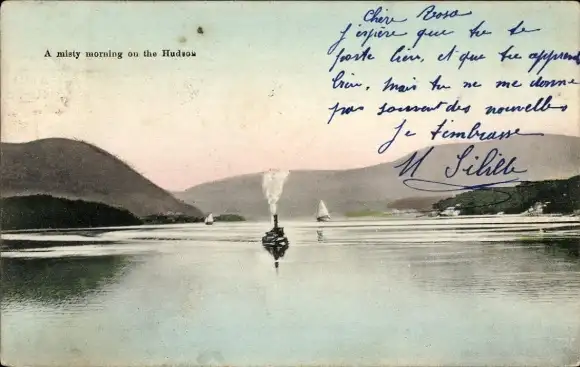 A misty morning on the Hudson
Chère Rosa
J'espère que tu te
porte bien, et que tu apprend
bien, mais tu ne me donne
pas souvent des nouvelles
Je t'embrasse
M